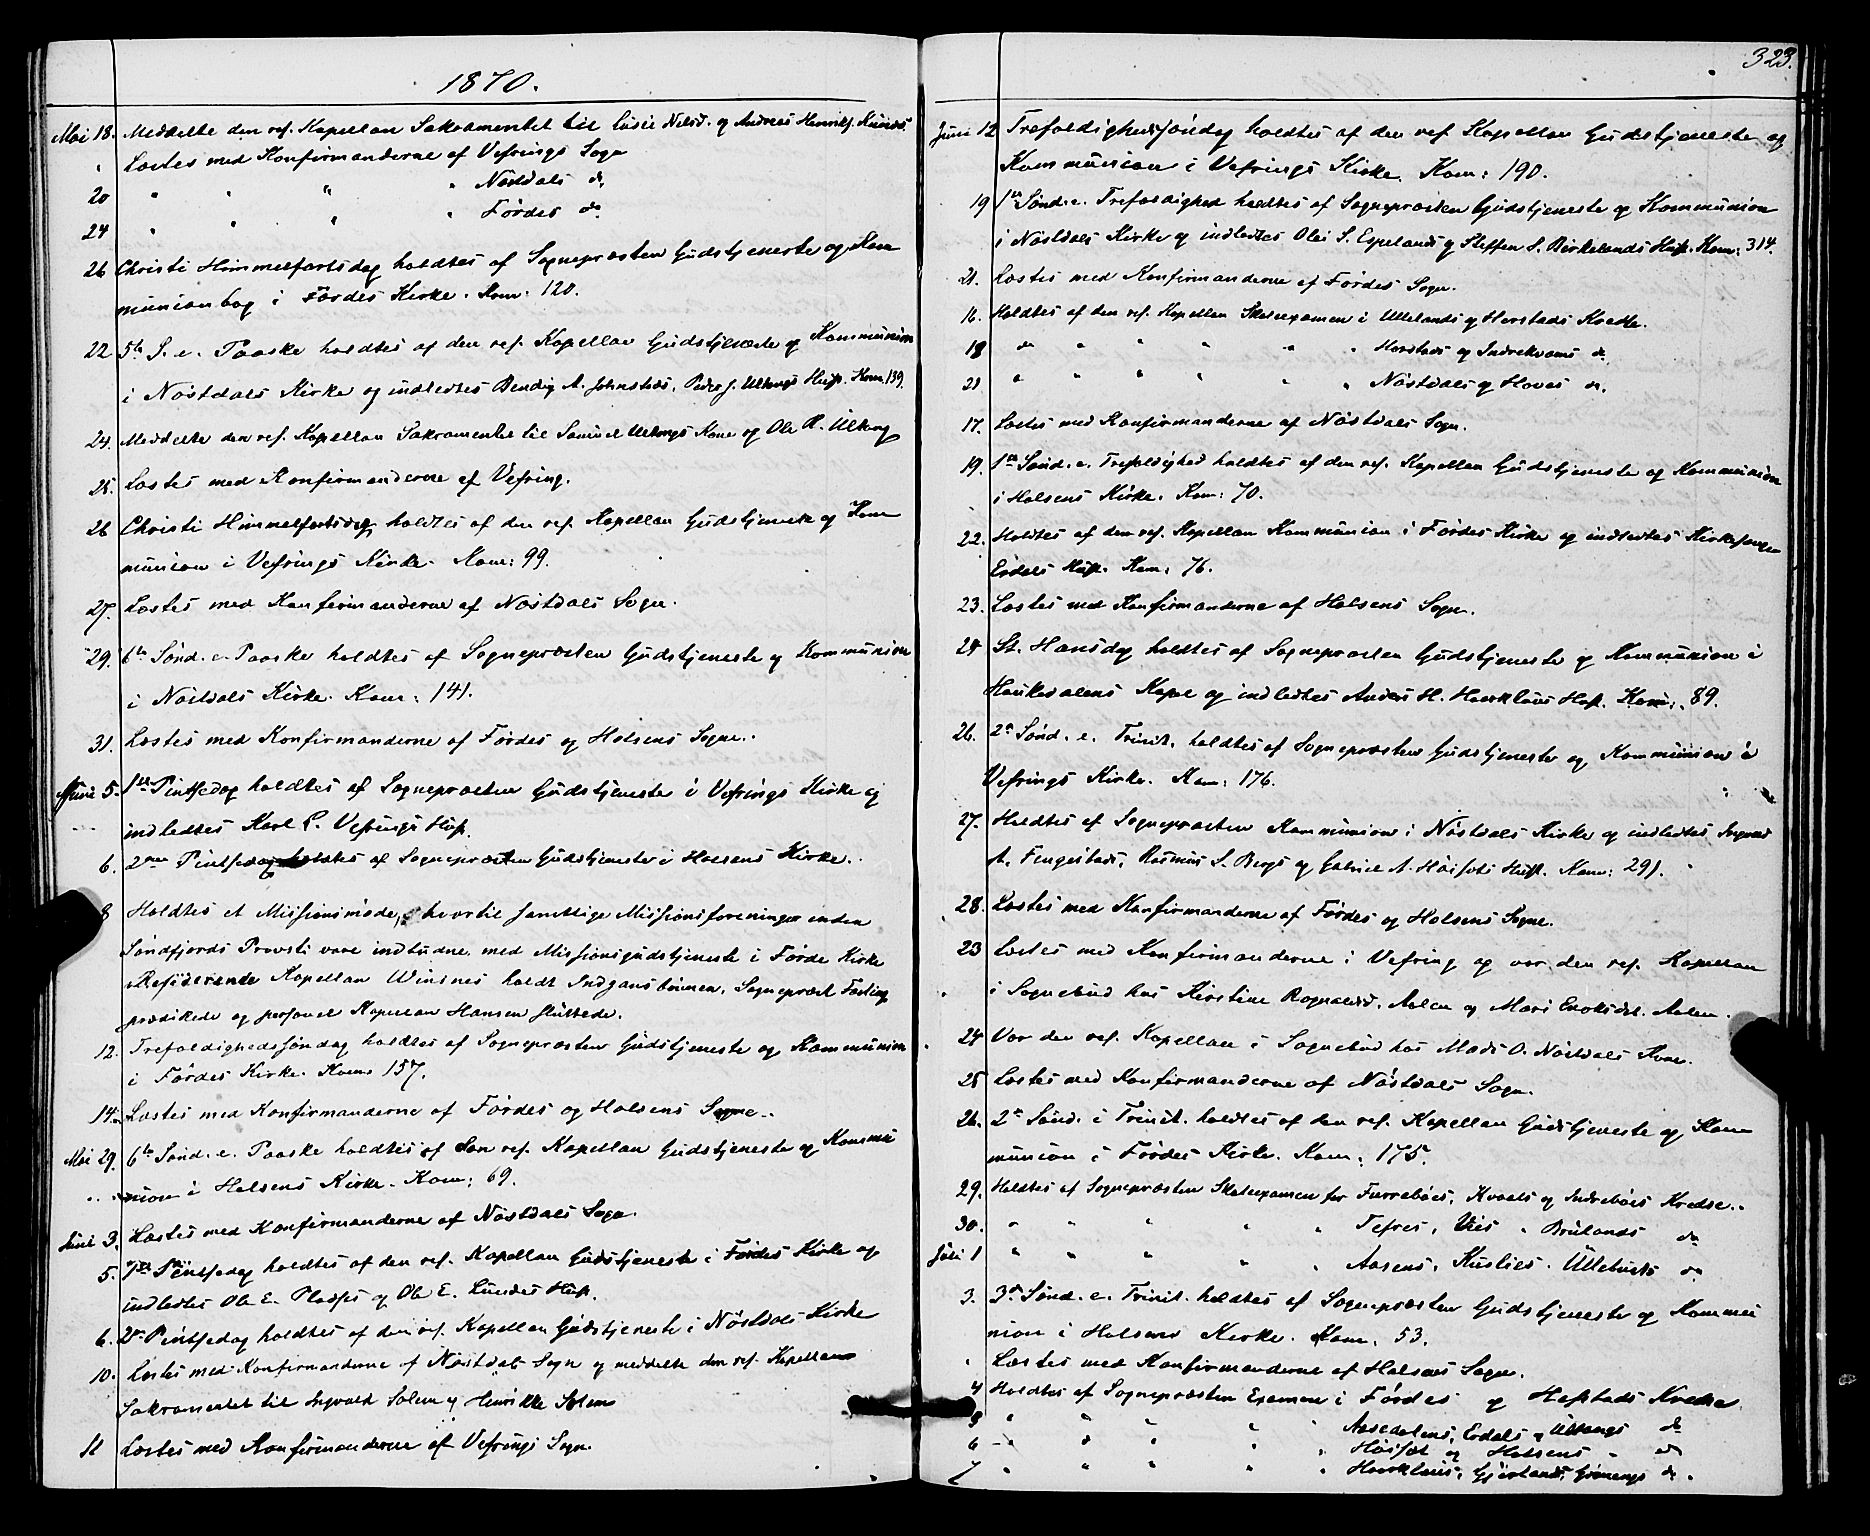 1870.
Mai 18. Meddelte den res. Kapellan Sakramentet til Lusie Nelsd. og Andreas Henriks.
" Læstes med Konfirmanderne af Vefrings Sogn
20 " " " " Nöstdals do
24 " " " " Førdes do
26 Christi Himmelfartsdag holdtes af Sognepræsten Gudstjeneste og Kom
munion i Førdes Kirke. Kom: 120.
22 5te S. e. Paaske holdtes af den res. Kapellan Gudstjeneste og Kommunion
i Nöstdals Kirke og indledtes Bendig A. Johnstads, Peder J. Ulltangs Hust. Kom. 139.
24. Meddelte den res. Kapellan Sakramentet til Samuel Ulltangs Kone og Ole R. Ulltang
25. Læstes med Konfirmanderne af Vefring.
26 Christi Himmelfartsdag holdtes af den res. Kapellan Gudstjeneste og Kom
munion i Vefrings Kirke. Kom: 99.
27. Læstes med Konfirmanderne af Nöstdals Sogn.
29. 6te Sönd. e. Paaske holdtes af Sognepræsten Gudstjeneste og Kommunion
i Nöstdals Kirke. Kom: 141.
31. Læstes med Konfirmanderne af Førdes og Holsens Sogne.
Juni 5. 1ste Pintsedag holdtes af Sognepræsten Gudstjeneste i Vefrings Kirke og
indledtes Karl L. Vefrings Hust.
6. 2den Pintsedag holdtes af Sognepræsten Gudstjeneste i Holsens Kirke.
8 Holdtes et Missionsmöde, hvortil samtlige Missionsforeninger inden
Söndfjords Provsti vare indbudne med Missionsgudstjeneste i Förde Kirke
Residerende Kapellan Winsnes holdt Indgangsbönnen, Sognepræst
prædikede og personel Kapellan Hansen sluttede.
12. Trefoldighedssöndag holdtes af Sognepræsten Gudstjeneste og Kommunion
i Førdes Kirke. Kom. 157.
14. Læstes med Konfirmanderne af Førdes og Holsens Sogne.
Mai 29. 6te Sönd. e. Paaske holdtes af den res. Kapellan Gudstjeneste og Kommu
nion i Holsens Kirke. Kom: 69.
Juni 3. Læstes med Konfirmanderne af Nöstdals Sogn.
5. 1ste Pintsedag holdtes af den res. Kapellan Gudstjeneste i Førdes Kirke og
indledtes Ole E. og Ole E. Lundes Hust.
6. 2den Pintsedag holdtes af den res. Kapellan Gudstjeneste i Nöstdals Kirke
10. Læstes med Konfirmanderne af Nöstdals Sogn og meddelte den res. Kapellan
Sakramentet til Ingvald Solem og Henrikke Solem
11 Læstes med Konfirmanderne af Vefrings Sogn.
323.
Juni 12 Trefoldighedssöndag holdtes af den res. Kapellan Gudstjeneste og
Kommunion i Vefrings Kirke. Kom: 190.
19 1ste Sönd. e. Trefoldighed holdtes af Sognepræsten Gudstjeneste og Kommunion
i Nöstdals Kirke og indledtes Olai S. Espelands og Steffen S. Birkelands Hust. Kom: 314.
21. Læstes med Konfirmanderne af Førdes Sogn.
16. Holdtes af den res. Kapellan Skoleexamen i Ullelands og Horstads Kredse.
18 do " " " " " Horstads og Indrekvams do
21 " " " " " " Nöstdals og Hoves do
17. Læstes med Konfirmanderne af Nöstdals Sogn.
19. 1ste Sönd. e. Trefoldighed holdtes af den res. Kapellan Gudstjeneste og Kommunion
i Holsens Kirke. Kom: 70.
22. Holdtes af den res. Kapellan Kommunion i Førdes Kirke og indledtes Kirkesanger
Erdals Hust. Kom: 76.
23. Læstes med Konfirmanderne af Holsens Sogn.
24 St. Hansdag holdtes af Sognepræsten Gudstjeneste og Kommunion i
Haukedalens Kapel og indledtes Anders H. Hust. Kom: 89.
26. 2. Sönd. e. Trinit. holdtes af Sognepræsten Gudstjeneste og Kommunion i
Vefrings Kirke. Kom: 176.
27. Holdtes af Sognepræsten Kommunion i Nöstdals Kirke og indledtes Ingvald
A. Fengestads, Rasmus S. Bergs og Gabriel A. Hust. Kom: 291.
28. Læstes med Konfirmanderne af Førdes og Holsens Sogne.
23 Læstes med Konfirmanderne i Vefring og var den res. Kapellan
i Sognebud hos Kirstine Rognaldsd. Aalen og Mari Enoksd. Aalen.
24 Var den res. Kapellan i Sognebud hos Mads O. Nöstdals Kone.
25 Læstes med Konfirmanderne af Nöstdals Sogn.
26. 2. Sönd. e. Trinit. holdtes af den res. Kapellan Gudstjeneste og Kom
munion i Førdes Kirke. Kom: 175.
29. Holdtes af Sognepræsten Skoleexamen for Furreböes, Kvaals og Indreböes Kredse.
30. " " " " " Tefres, Vies " Brulands do
Juli 1 " " " " " Aasens, Kuslies, do
3. 3. Sönd. e. Trinit. holdtes af Sognepræsten Gudstjeneste og Kommu
nion i Holsens Kirke. Kom. 53.
" Læstes med Konfirmanderne af Holsens Sogn.
4 Holdtes af Sognepræsten Examen i Førdes og Hafstads Kredse
5 " " " " " Aasedalens, Erdals, Ulltangs do
6 " " " " og Holsens do
7 " " " " " Gjerlands, do